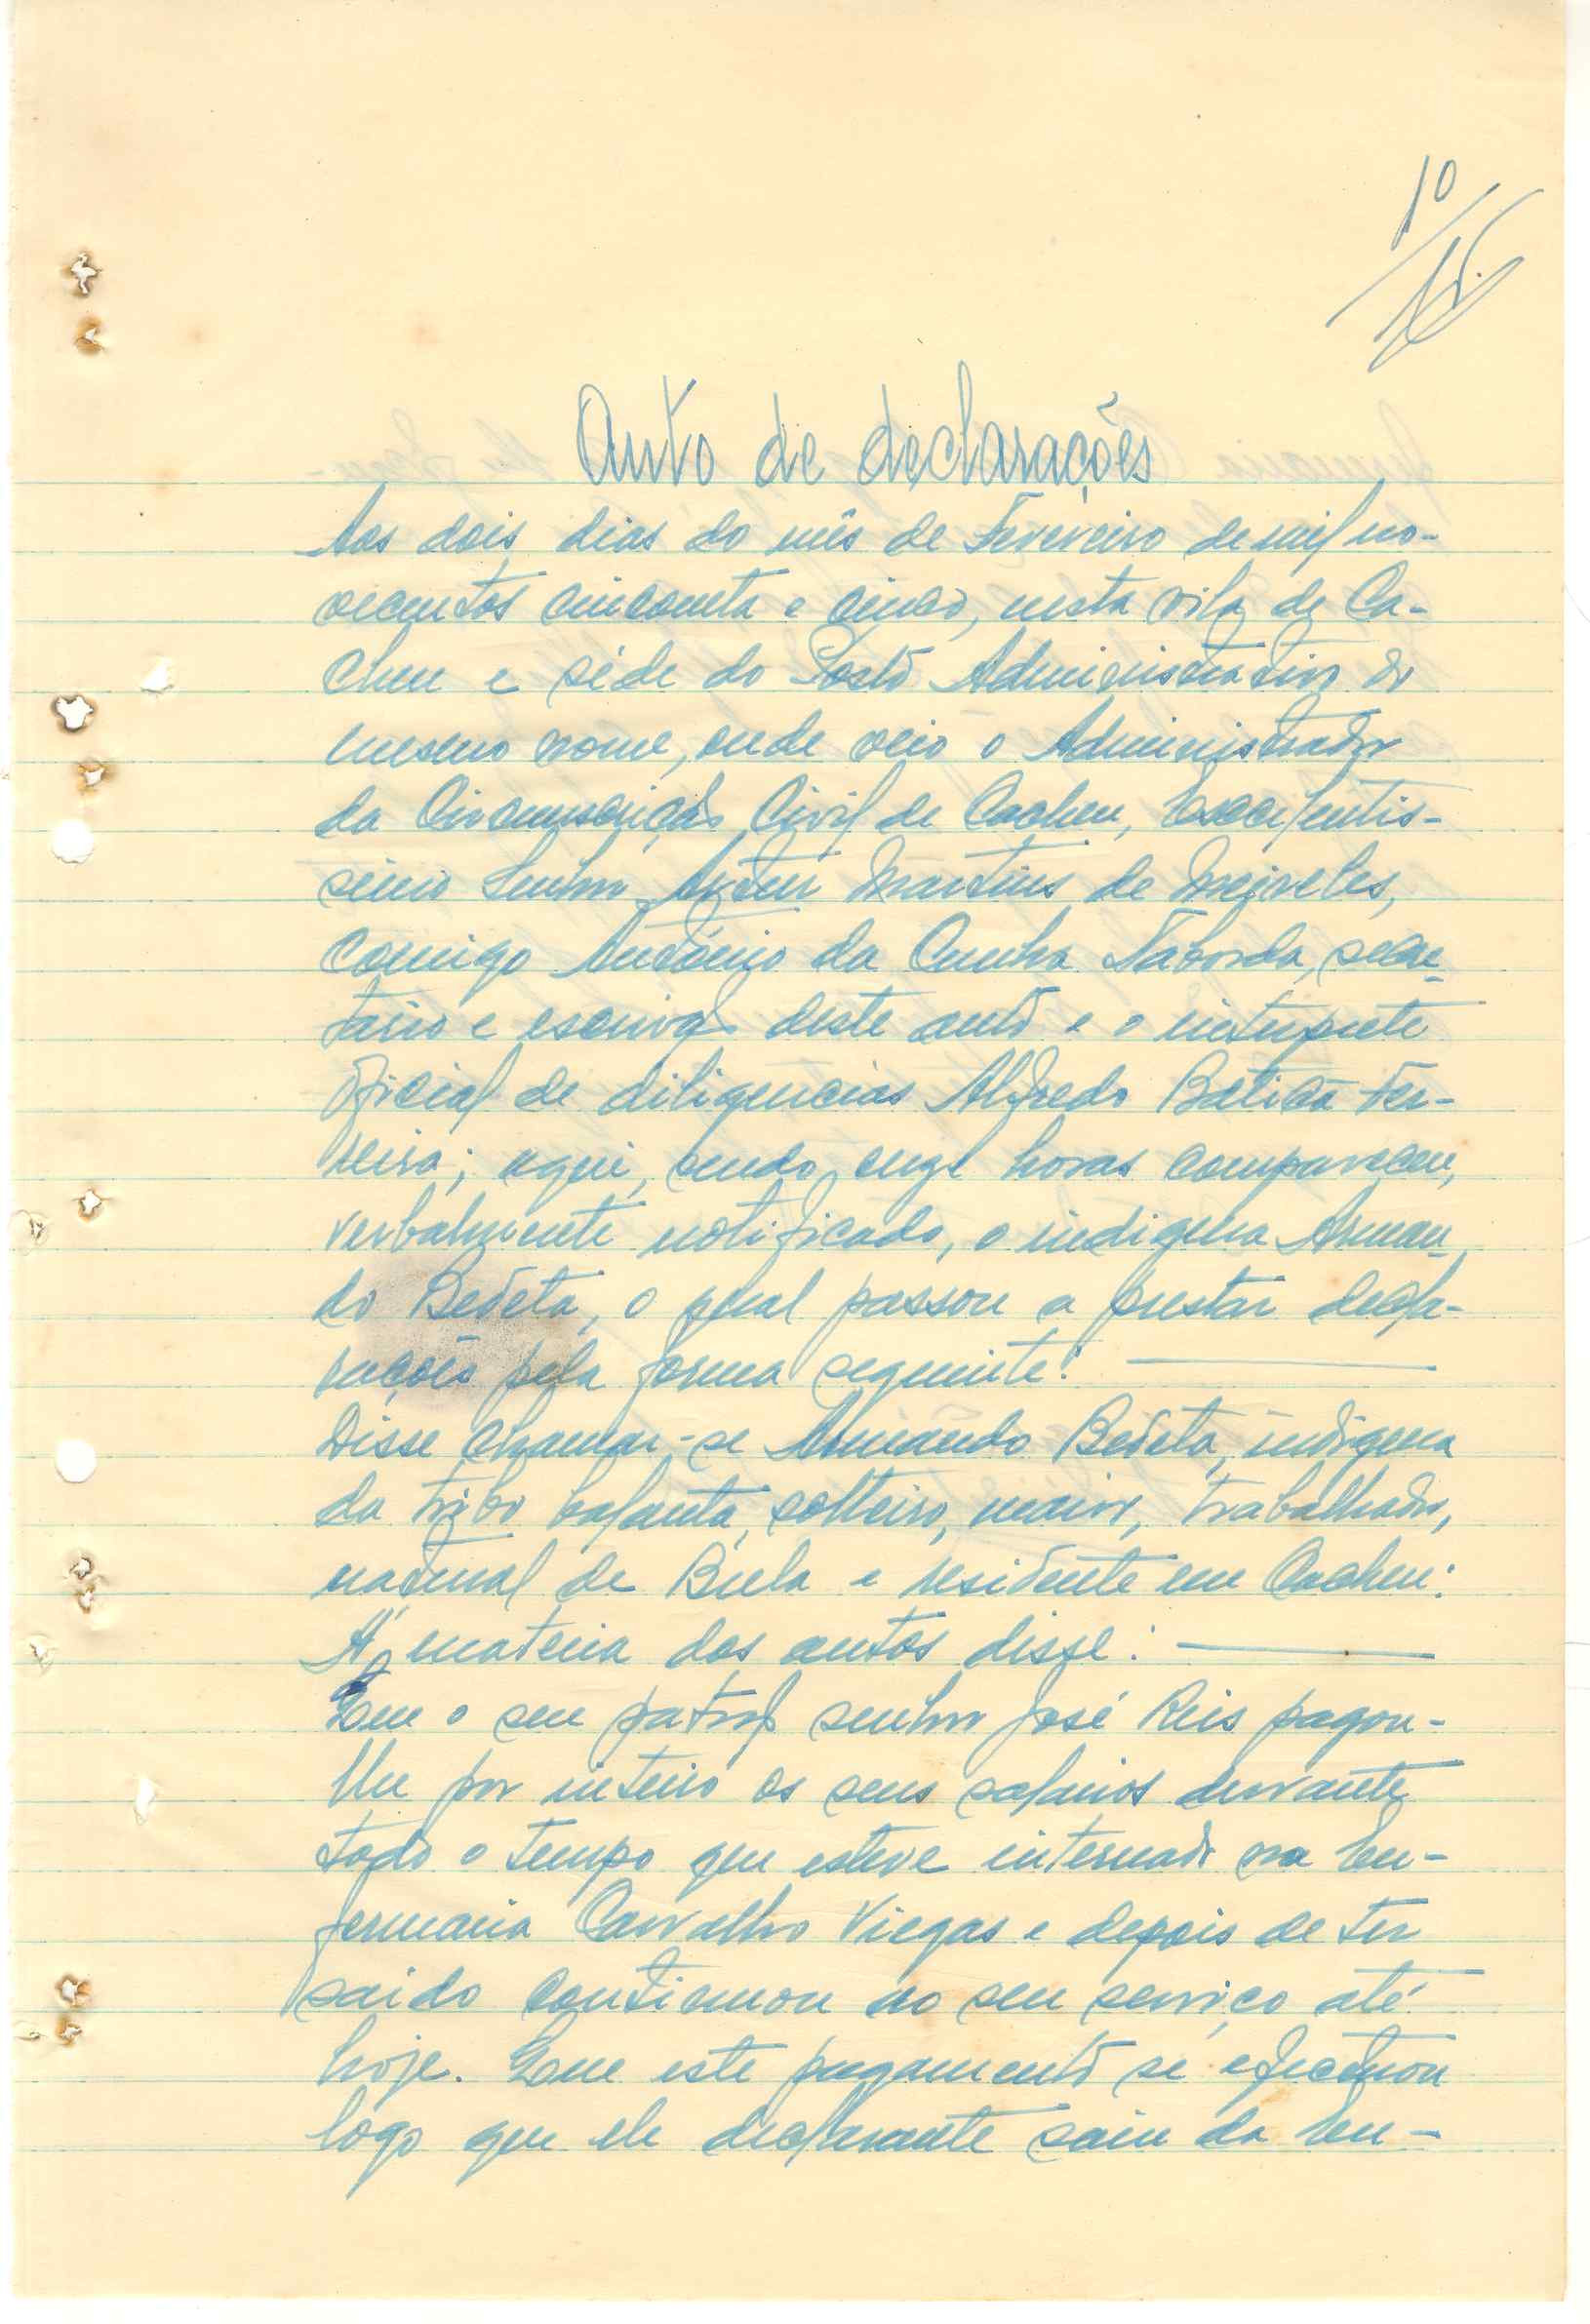 10
Auto de declarações
Aos dois dias do mês de Fevereiro de mil no-
vecentos cincoenta e cinco, nesta vila de Ca-
cheu e séde do Posto Administrativo do
mesmo nome, onde veio o Administrador
da Circunscrição Civil de Cacheu, Excelentis-
simo Senhor Artur Martins de Meireles,
comigo António da Cunha Taborda, secre-
tario e escrivão deste auto e o interprete
oficial de diligencias Alfredo Batica Fer-
reira; aqui, sendo onze horas compareceu,
verbalmente notificado, o indigena Arman-
do Bedeta, o qual passou a prestar decla-
rações pela forma seguinte:
Disse chamar-se Armando Bedeta, indigena
da tribo balanta, solteiro, maior, trabalhador,
natural de Biela e residente em Cacheu:
Á materia dos autos disse:
Que o seu patrão senhor José Reis pagou-
lhe por inteiro os seus salarios durante
todo o tempo que esteve internado na En-
fermaria Carvalho Viegas e depois de ter
saido continuou no seu serviço até
hoje. Que este pagamento se efectuou
logo que ele declarante saiu da En-